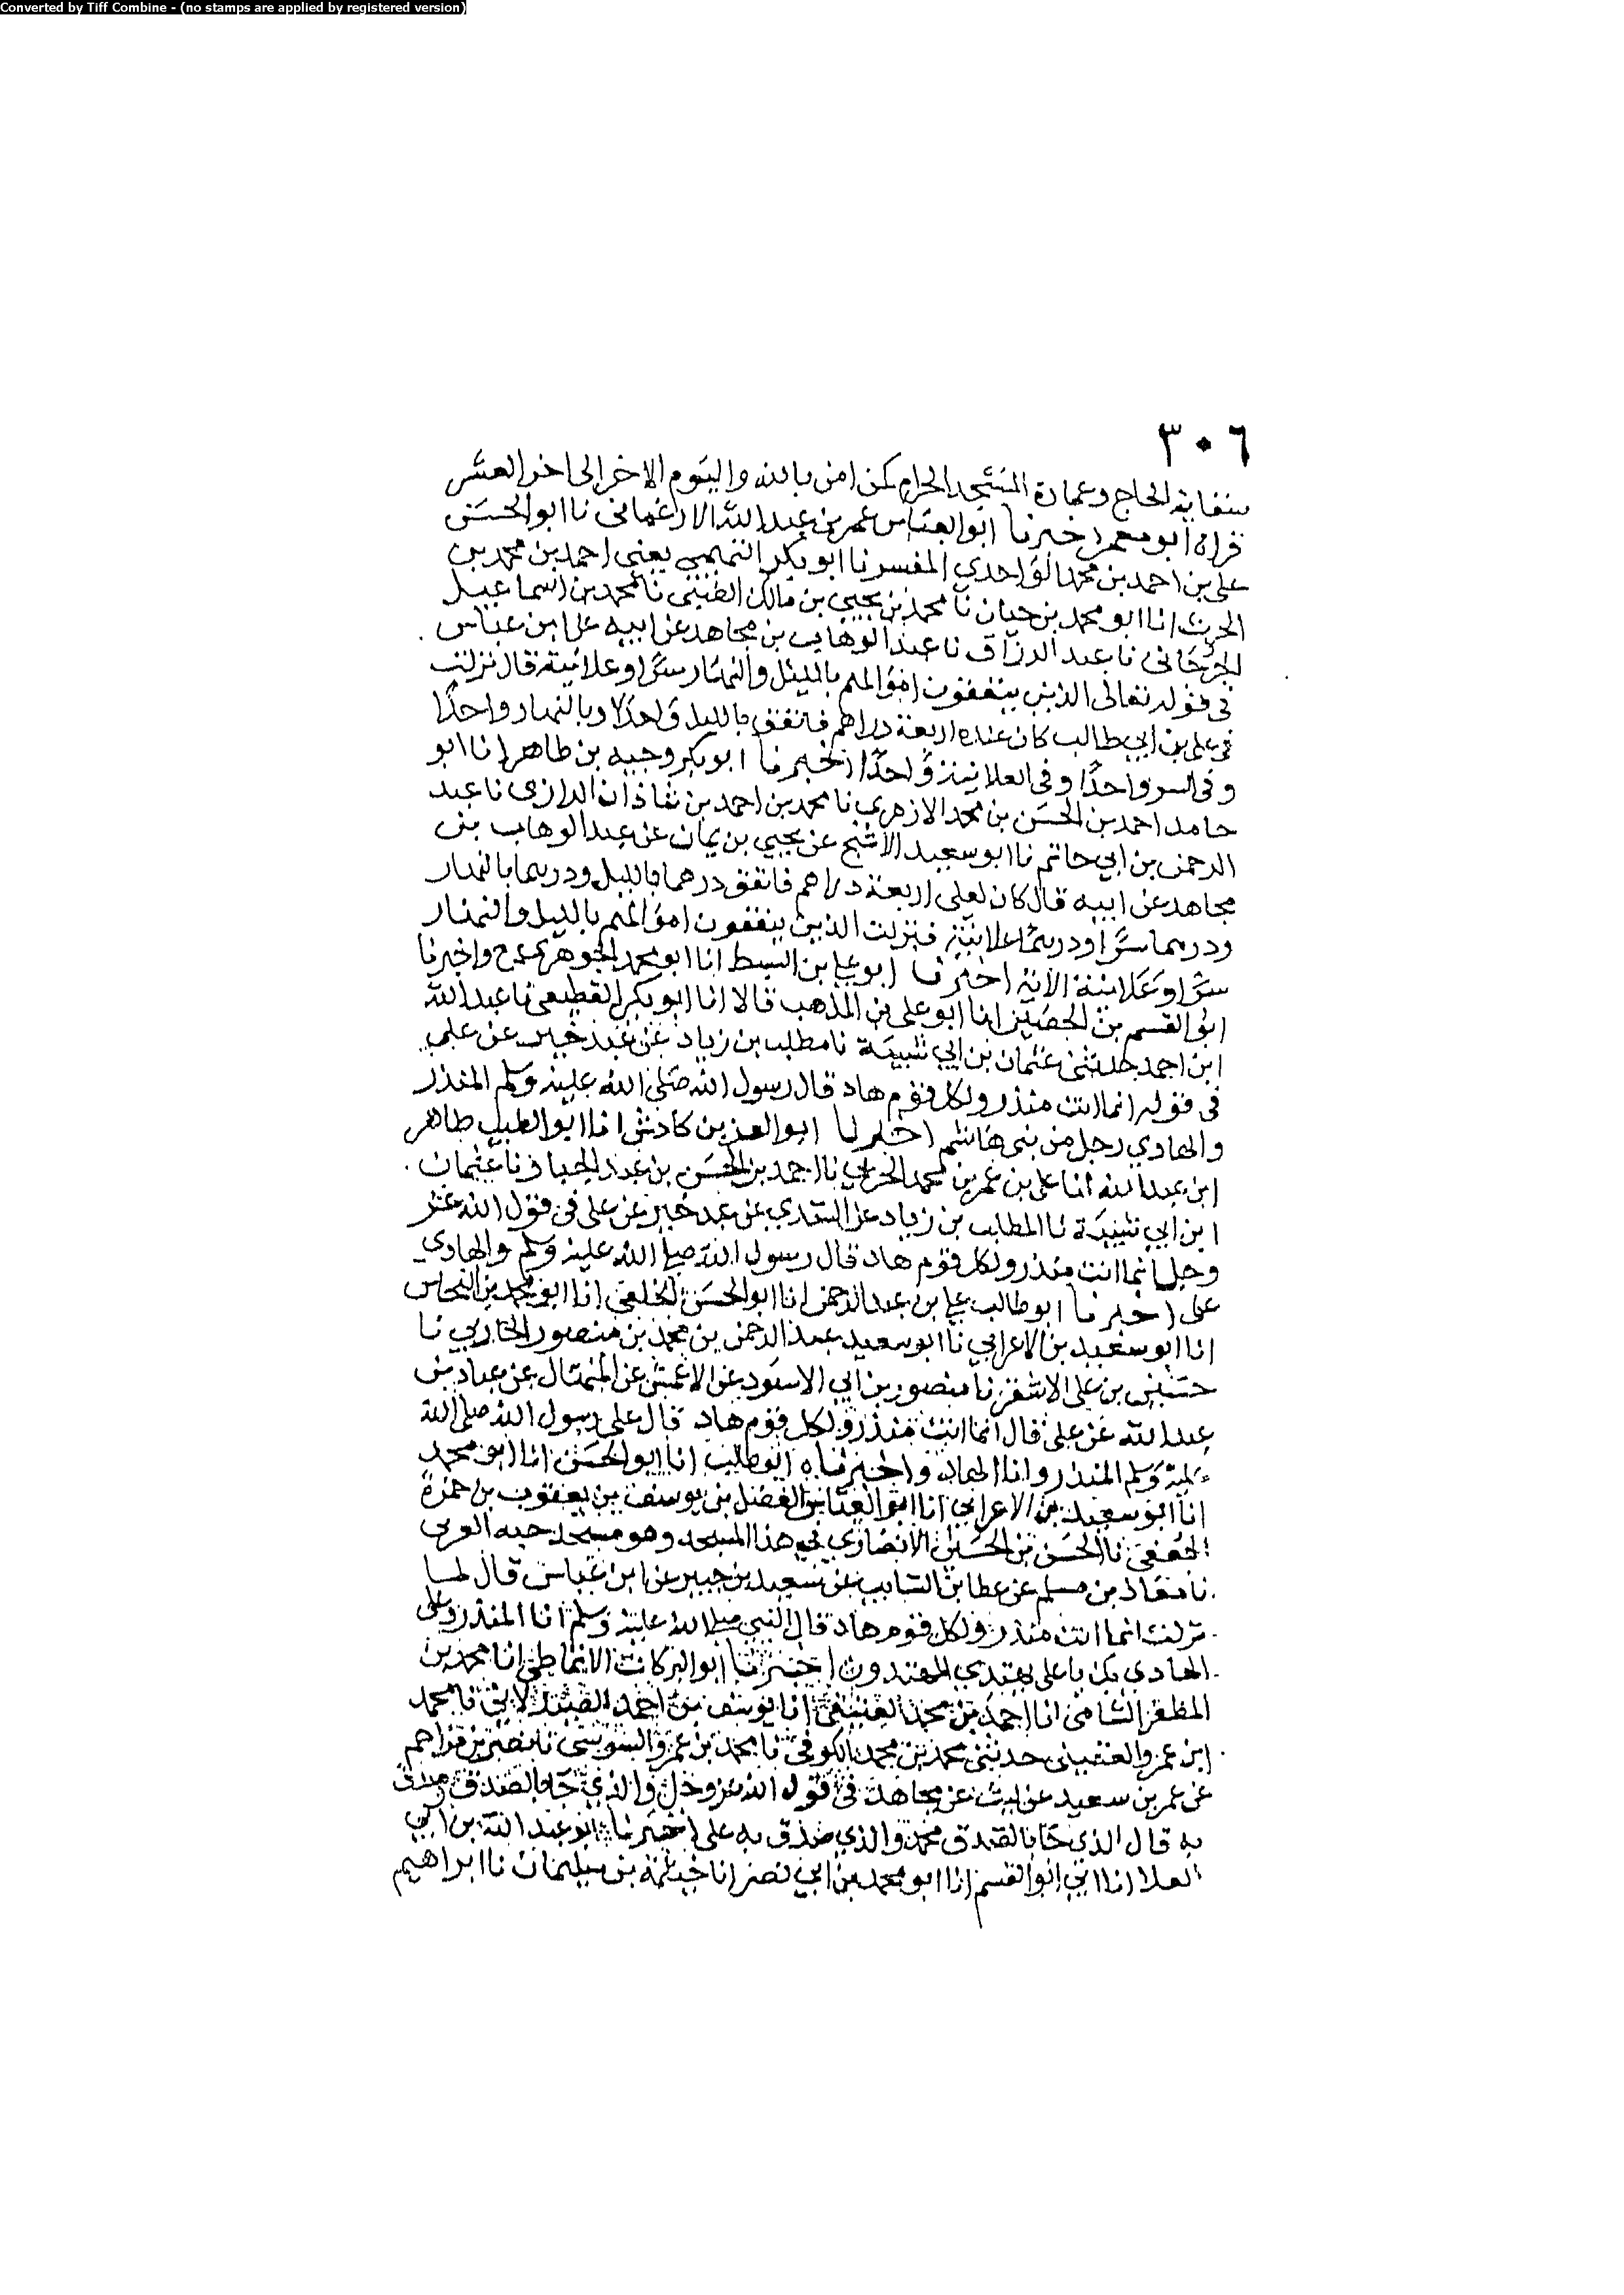 Converted by Tiff Combine - (no stamps are applied by registered version)
٣٠٦
سقاية الحاج وعمارة المسجد الحرام كمن امن بالله واليوم الاخر الى اخر العشر
قراه ابو معمر اخبرنا ابو العباس عمر بن عبد الله الارغياني نا ابو الحسن
علي بن احمد بن محمد الواحدي المفسر نا ابو بكر التميمي يعني احمد بن محمد بن
الحرث انا ابو محمد بن حيان نا محمد بن يحيى بن مالك الضبي نا محمد بن اسماعيل
الجرجاني نا عبد الرزاق نا عبد الوهاب بن مجاهد عن ابيه عن ابن عباس
في قوله تعالى الذين ينفقون اموالهم بالليل والنهار سرا وعلانية قال نزلت
في علي بن ابي طالب كان عنده اربعة دراهم فانفق بالليل واحدا وبالنهار واحدا
وفي السر واحدا وفي العلانية واحدا اخبرنا ابو بكر وجيه بن طاهر انا ابو
حامد احمد بن الحسن بن محمد الازهري نا محمد بن احمد بن شاذان الرازي نا عبد
الرحمن بن ابي حاتم نا ابو سعيد الاشج عن يحيى بن يمان عن عبد الوهاب بن
مجاهد عن ابيه قال كان لعلي اربعة دراهم فانفق درهما بالليل ودرهما بالنهار
ودرهما سرا ودرهما علانية فنزلت الذين ينفقون اموالهم بالليل والنهار
سرا وعلانية الاية اخبرنا ابو علي بن السبط انا ابو محمد الجوهري ح واخبرنا
ابو القسم بن الحصين انا ابو علي بن المذهب قالا انا ابو بكر القطيعي نا عبد الله
ابن احمد حدثني عثمان بن ابي شيبة نا مطلب بن زياد عن عبد خير عن علي
في قوله انما انت منذر ولكل قوم هاد قال رسول الله صلى الله عليه وسلم المنذر
والهادي رجل من بني هاشم اخبرنا ابو العز بن كادش انا ابو الطيب طاهر
ابن عبد الله انا علي بن عمر بن محمد الحربي نا احمد بن الحسن بن عبد الجبار نا عثمان
ابن ابي شيبة نا المطلب بن زياد عن السدي عن عبد خير عن علي في قول الله عز
وجل انما انت منذر ولكل قوم هاد قال رسول الله صلى الله عليه وسلم والهادي
علي اخبرنا ابو طالب علي بن عبد الرحمن انا ابو الحسن الخلعي انا ابو محمد بن النحاس
انا ابو سعيد بن الاعرابي نا ابو سعيد عبد الرحمن بن محمد بن منصور الحاربي نا
حسين بن علي الاشقر نا منصور بن ابي الاسود عن الاعمش عن المنهال عن عباد بن
عبد الله عن علي قال انما انت منذر ولكل قوم هاد قال علي رسول الله صلى الله
عليه وسلم المنذر وانا الهاد واخبرناه ابو طالب انا ابو الحسن انا ابو محمد
انا ابو سعيد بن الاعرابي انا ابو العباس الفضل بن يوسف بن يعقوب بن حمزة
الجعفي نا الحسن بن الحسين الانصاري في هذا المسجد وهو مسجد حبه العرني
نا معاذ بن مسلم عن عطا بن السايب عن سعيد بن جبير عن ابن عباس قال لما
نزلت انما انت منذر ولكل قوم هاد قال النبي صلى الله عليه وسلم انا المنذر وعلي
الهادي بك يا علي يهتدي المهتدون اخبرنا ابو البركات الانماطي انا محمد بن
المظفر الشامي انا احمد بن محمد العتيقي انا يوسف بن احمد الصيدلاني نا محمد
ابن عمرو العقيلي حدثني محمد بن محمد الكوفي نا محمد بن عمرو السوسي نا نصر بن مزاحم
عن عمر بن سعيد عن ليث عن مجاهد في قول الله عز وجل والذي جا بالصدق وصدق
به قال الذي جا بالصدق محمد والذي صدق به علي اخبرنا ابو عبد الله بن ابي
العلا انا ابي ابو القسم انا ابو محمد بن ابي نصر انا خيثمة بن سليمان نا ابراهيم